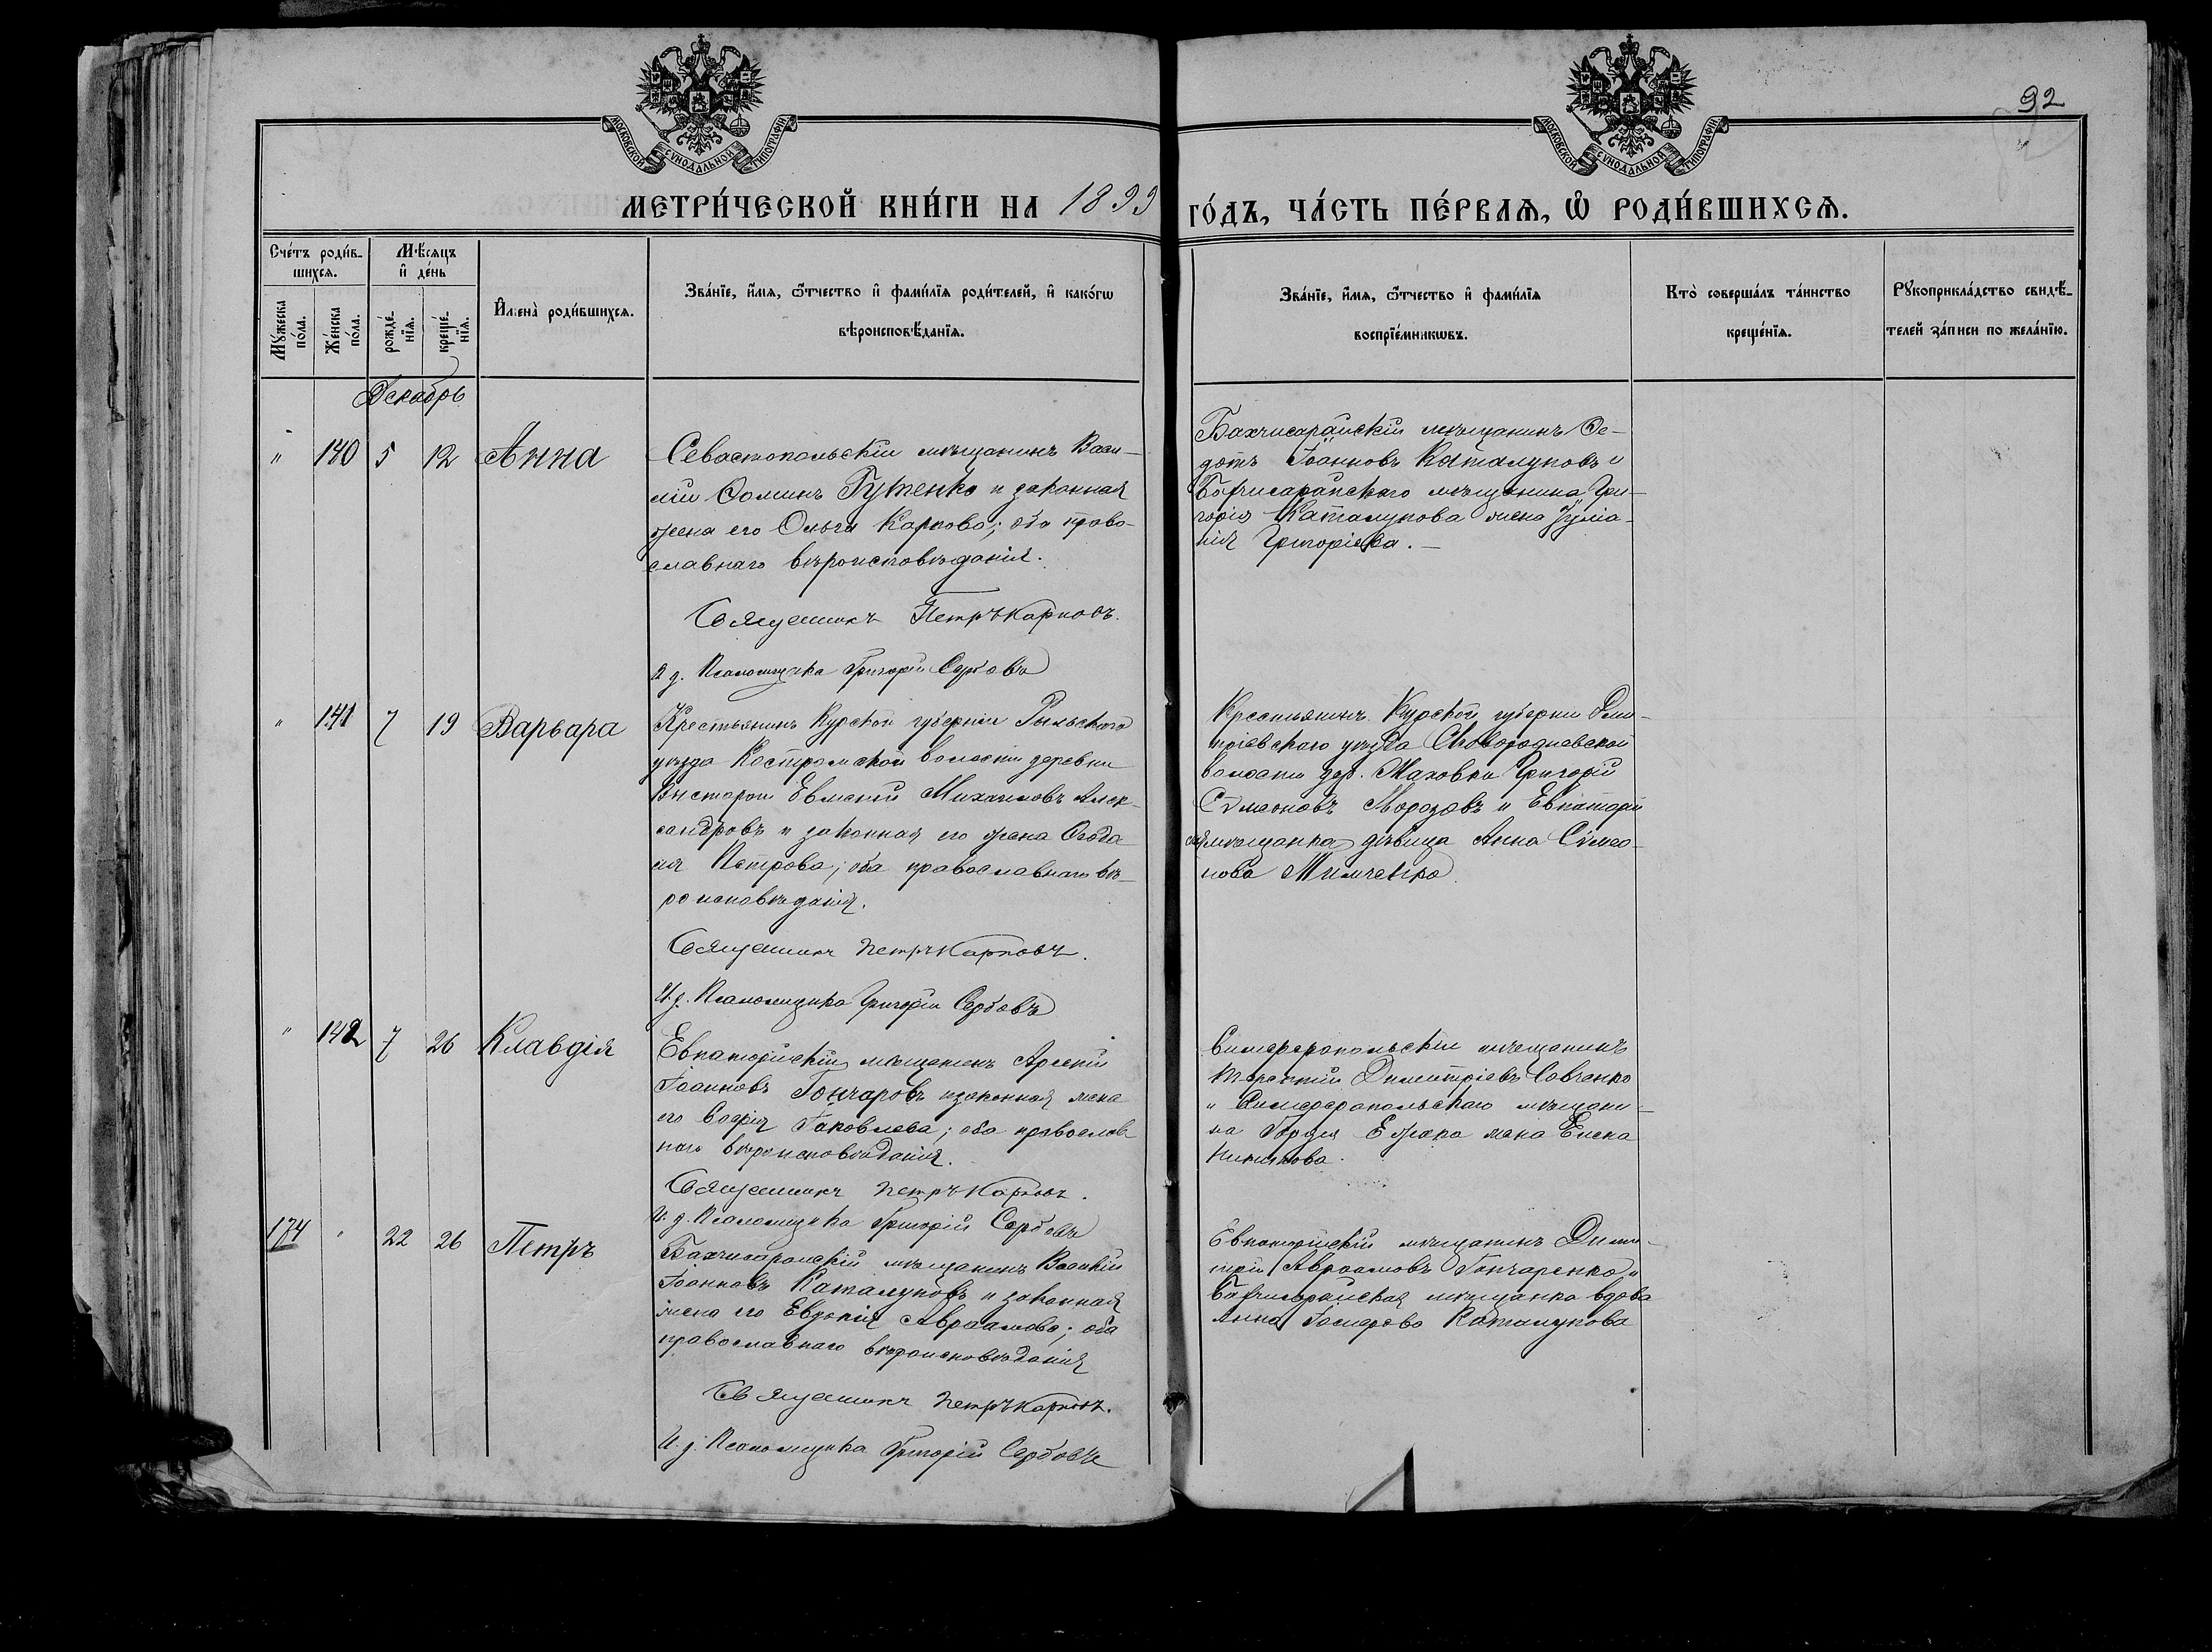 92
МОСКОВСКОЙ СѴНОДАЛЬНОЙ ТИПОГРАФІИ
МОСКОВСКОЙ СѴНОДАЛЬНОЙ ТИПОГРАФІИ
МЕТРИ́ЧЕСКОЙ КНИ́ГИ НА 1899
ГО́ДЪ, ЧА́СТЬ ПЕ́РВАѦ, Ѽ РОДИ́ВШИХСѦ.
Сче́тъ роди́в-
шихсѧ.
Мꙋ́жеска по́ла.
Же́нска по́ла.
Мѣ́сѧцъ
и҆ де́нь
рожде́-
нїѧ.
креще́-
нїѧ.
И҆мена̀ роди́вшихсѧ.
Зва́нїе, и҆́мѧ, ѻ҆́тчество и҆ фами́лїѧ роди́телей, и҆ како́гѡ
вѣроисповѣ́данїѧ.
Зва́нїе, и҆́мѧ, ѻ҆́тчество и҆ фами́лїѧ
воспрїе́мникѡвъ.
Кто̀ соверша́лъ та́инство
креще́нїѧ.
Рꙋкоприкла́дство свидѣ́-
телей за́писи по жела́нїю.
Декабрь
" 140 5 12 Анна
Севастопольскій мѣщанинъ Васи-
лій Ѳоминъ Гутенко и законная
жена его Ольга Карпова; оба право-
славнаго вѣроисповѣданія.
Священникъ Петръ Карповъ.
И д. Псаломщика Григорій Сербовъ
Бахчисарайскій мѣщанинъ Ѳе-
дотъ Іоанновъ Каталуповъ и
Бахчисарайскаго мѣщанина Гри-
горія Каталупова жена Іулiа-
нія Григоріева.
" 141 7 19 Варвара
Крестьянинъ Курской губерніи Рыльскаго
уѣзда Костромской волости деревни
Евмений Михаиловъ Алек-
сандровъ и законная его жена
Петрова; оба православнаго вѣ-
роисповѣданія.
Священникъ Петръ Карповъ.
И. д. Псаломщика Григорій Сербовъ
Крестьянинъ Курской губерніи Дми-
тріевскаго уѣзда Сковородневской
волости дер. Маховки Григорій
Сѵмеоновъ Морозовъ и Евпаторій
ская мѣщанка дѣвица Анна Сѵмео-
нова
" 142 7 26 Клавдія
Евпаторійскій мѣщанинъ Арсеній
Іоанновъ Гончаровъ и законная жена
его Софія Іаковлева; оба православ
наго вѣроисповѣданія.
Священникъ Петръ Карповъ.
И. д. Псаломщика Григорій Сербовъ
Симферопольскій мѣщанинъ
Терентій Димитріевъ Савченко
и Симферопольскаго мѣщани-
на жена Елена
174 " 22 26 Петръ
Бахчисарайскій мѣщанинъ Василій
Іоанновъ Каталуповъ и законная
жена его Евдокія Авраамова; оба
православнаго вѣроисповѣданія
Священникъ Петръ Карповъ.
И. д. Псаломщика Григорій Сербовъ
Евпаторійскій мѣщанинъ Дими-
трій Авраамовъ Гончаренко и
Бахчисарайская мѣщанка вдова
Анна Каталупова